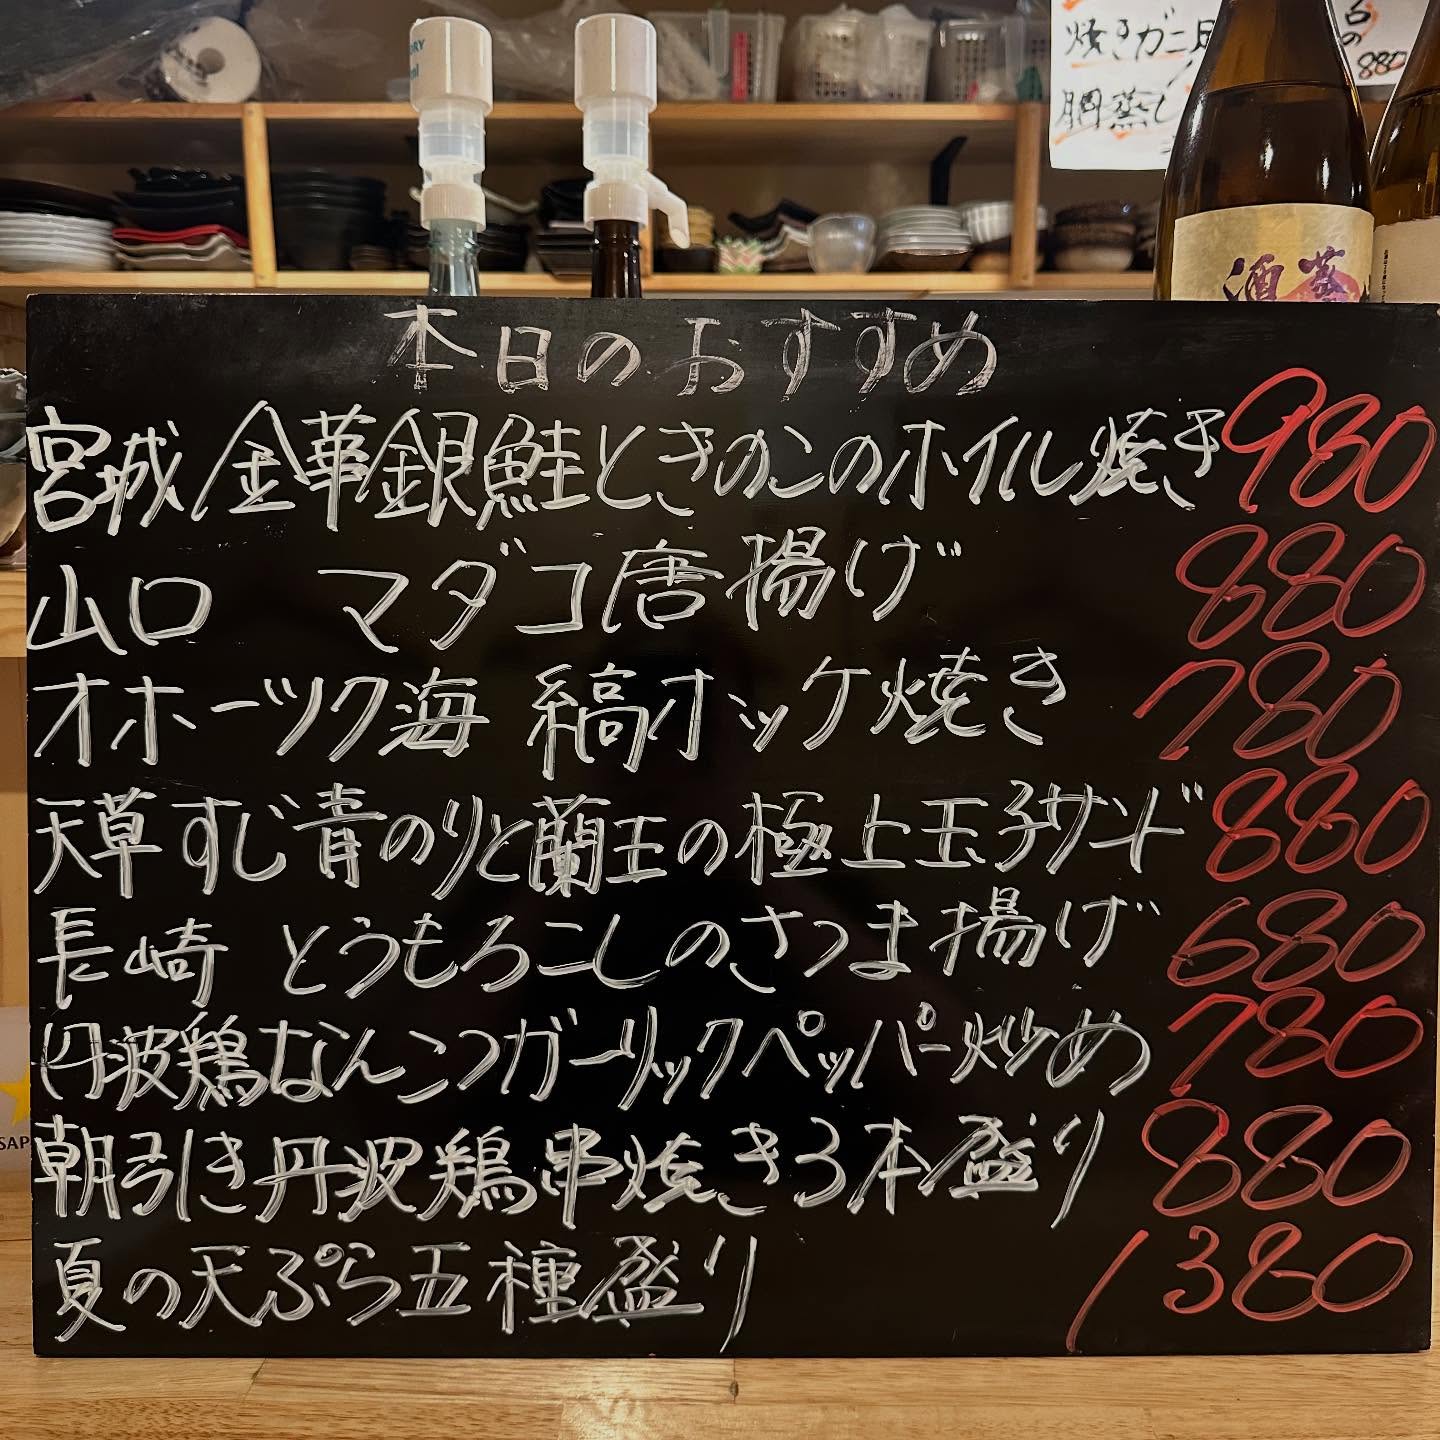 焼きガニ
胴蒸し
880
酒蒸
本日のおすすめ
宮城 金華銀鮭ときのこのホイル焼き 980
山口 マダコ唐揚げ 880
オホーツク海 縞ホッケ焼き 780
天草すじ青のりと蘭王の極上玉子サンド 880
長崎 とうもろこしのさつま揚げ 680
丹波鶏なんこつガーリックペッパー炒め 780
朝引き丹波鶏串焼き3本盛り 880
夏の天ぷら五種盛り 1380
SAP